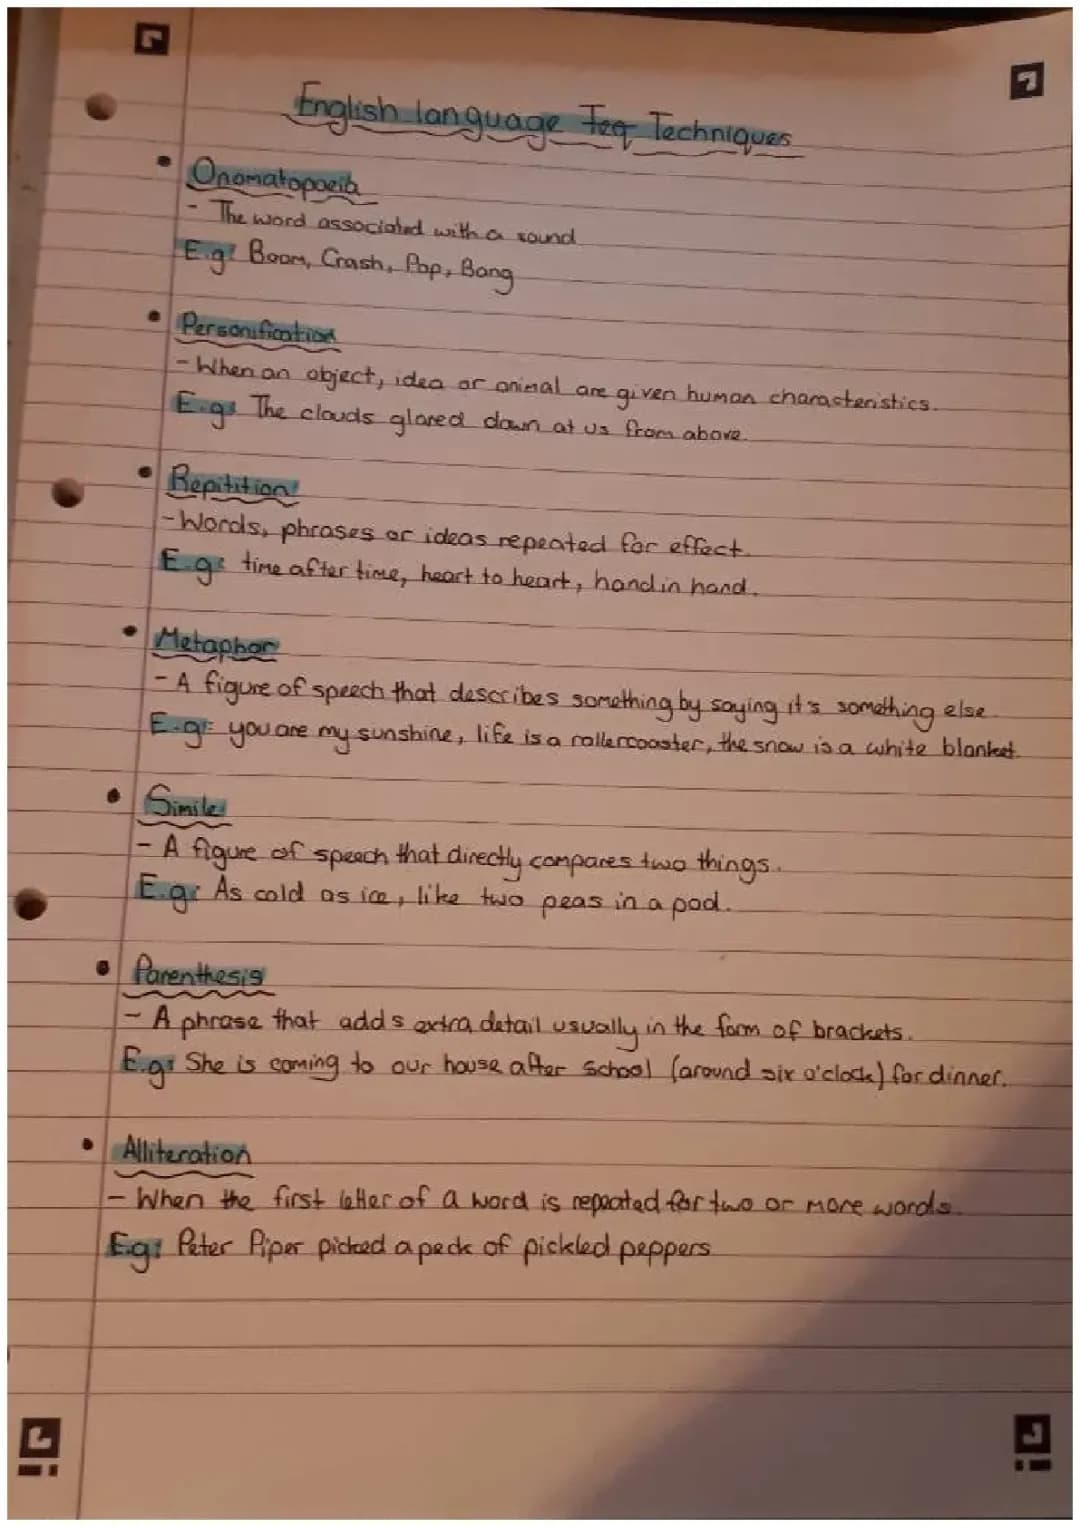 English language Teq Techniques
• Onomatopoeia
- The word associated with a sound
E.g: Boom, Crash, Pop, Bang
• Personification
- When an object, idea or animal are given human characteristics.
E.g: The clouds glared down at us from above.
• Repitition
- Words, phrases or ideas repeated for effect.
E.g: time after time, heart to heart, hand in hand.
• Metaphor
- A figure of speech that describes something by saying it's something else.
E.g: you are my sunshine, life is a rollercoaster, the snow is a white blanket.
• Simile
- A figure of speech that directly compares two things.
E.g: As cold as ice, like two peas in a pod.
• Parenthesis
- A phrase that adds extra detail usually in the form of brackets.
E.g: She is coming to our house after school (around six o'clock) for dinner.
• Alliteration
- When the first letter of a word is repeated for two or more words.
E.g: Peter Piper picked a peck of pickled peppers